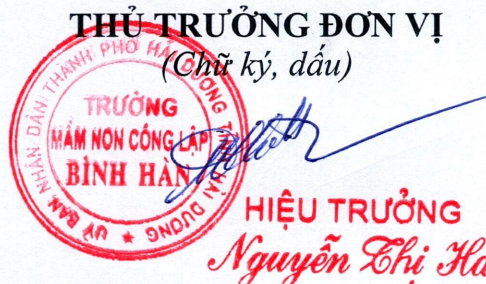 THỦ TRƯỞNG ĐƠN VỊ
(Chữ ký, dấu)
ỦY BAN NHÂN DÂN THÀNH PHỐ HẢI DƯƠNG TỈNH HẢI DƯƠNG
TRƯỜNG
MẦM NON CÔNG LẬP
BÌNH HÀN
HIỆU TRƯỞNG
Nguyễn Thị